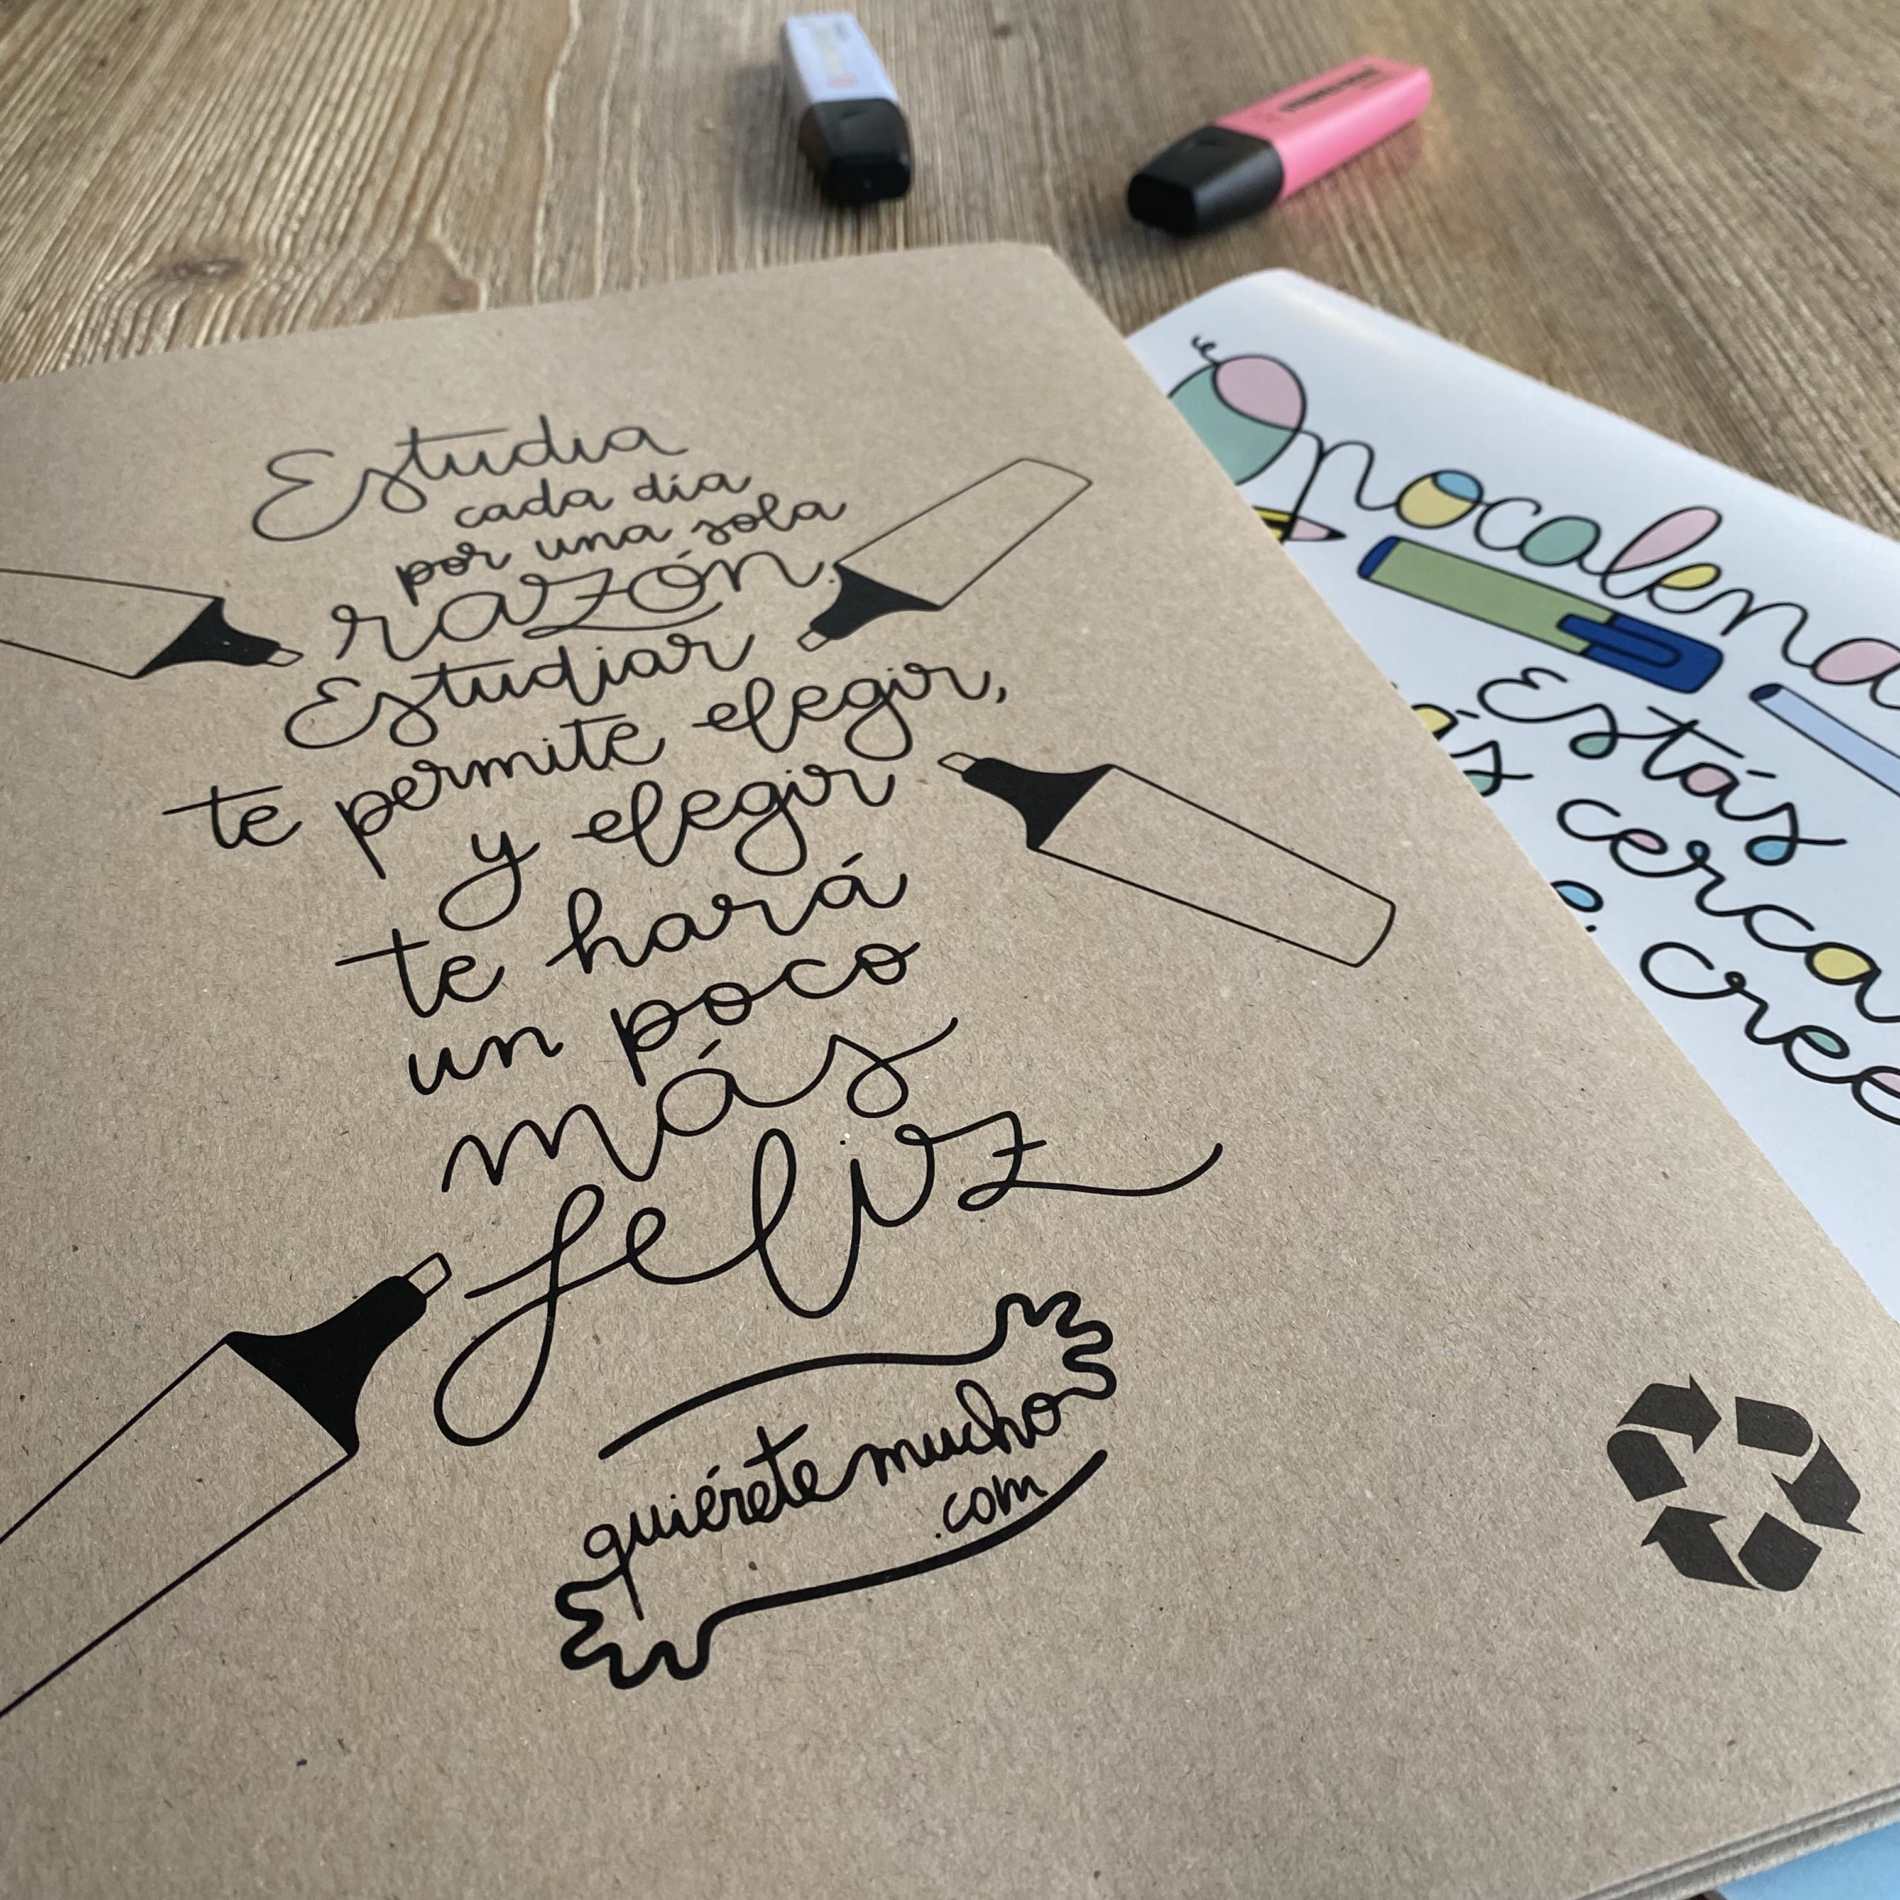 Estudia
cada día
por una sola
razón.
Estudiar
te permite elegir,
y elegir
te hará
un poco
más
feliz
quiéretemucho
.com
Opocalend
Estás
ás cerca
cree